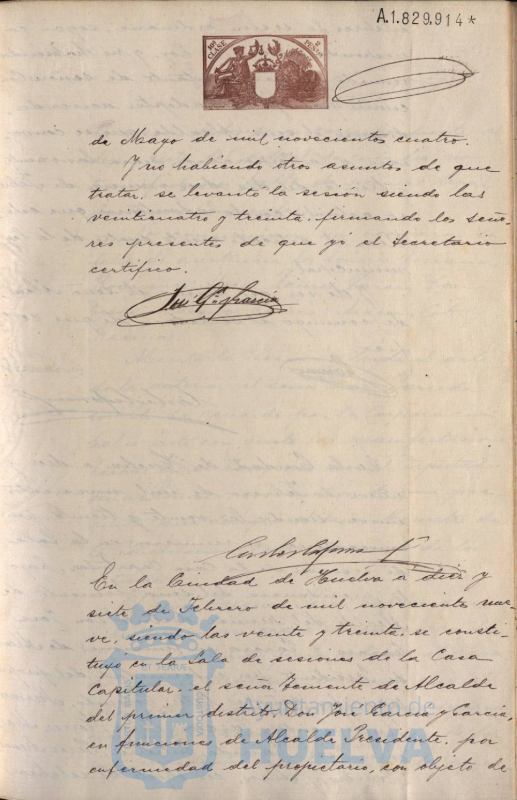 A.1.829.914*
10ª CLASE
2 PESETAS
de Mayo de mil novecientos cuatro.
Y no habiendo otros asuntos de que
tratar, se levantó la sesión siendo las
veinticuatro y treinta, firmando los seño-
res presentes de que yó el Secretario
certifico.
José Gª García
En la Ciudad de Huelva a diez y
siete de Febrero de mil novecientos nue-
ve, siendo las veinte y treinta, se consti-
tuyó en la Sala de sesiones de la Casa
Capitular, el señor Teniente de Alcalde
del primer distrito, Don José García y García,
en funciones de Alcalde Presidente, por
enfermedad del propietario, con objeto de
Ayuntamiento de
HUELVA